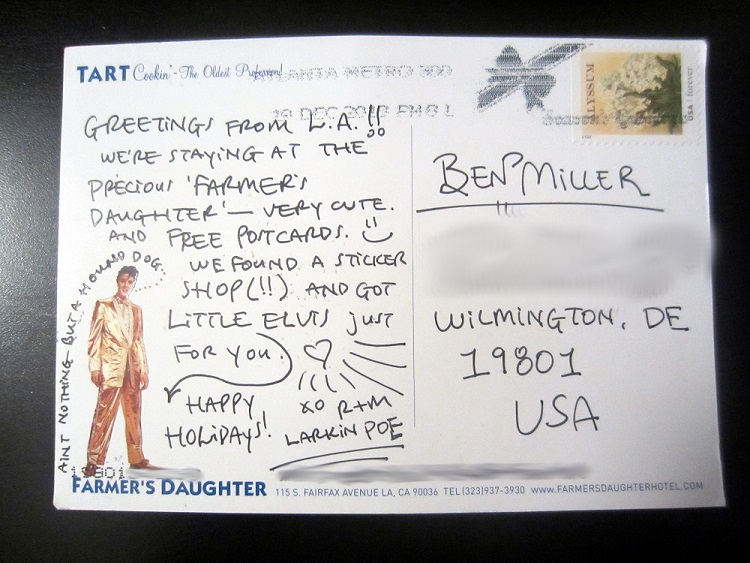 TART Cookin'-The Oldest Profession!
ATLANTA METRO 300
19 DEC 2013 PM 6 L
ALYSSUM
USA forever
GREETINGS FROM L.A.!!
WE'RE STAYING AT THE
PRECIOUS 'FARMER'S
DAUGHTER' — VERY CUTE.
AND FREE POSTCARDS.
WE FOUND A STICKER
SHOP(!!) AND GOT
LITTLE ELVIS JUST
FOR YOU.
HAPPY
HOLIDAYS!
XO R+M
LARKIN POE
AINT NOTHING BUT A HOUND DOG...
BEN MILLER
WILMINGTON, DE
19801
USA
19801
FARMER'S DAUGHTER 115 S. FAIRFAX AVENUE LA, CA 90036 TEL(323)937-3930 WWW.FARMERSDAUGHTERHOTEL.COM